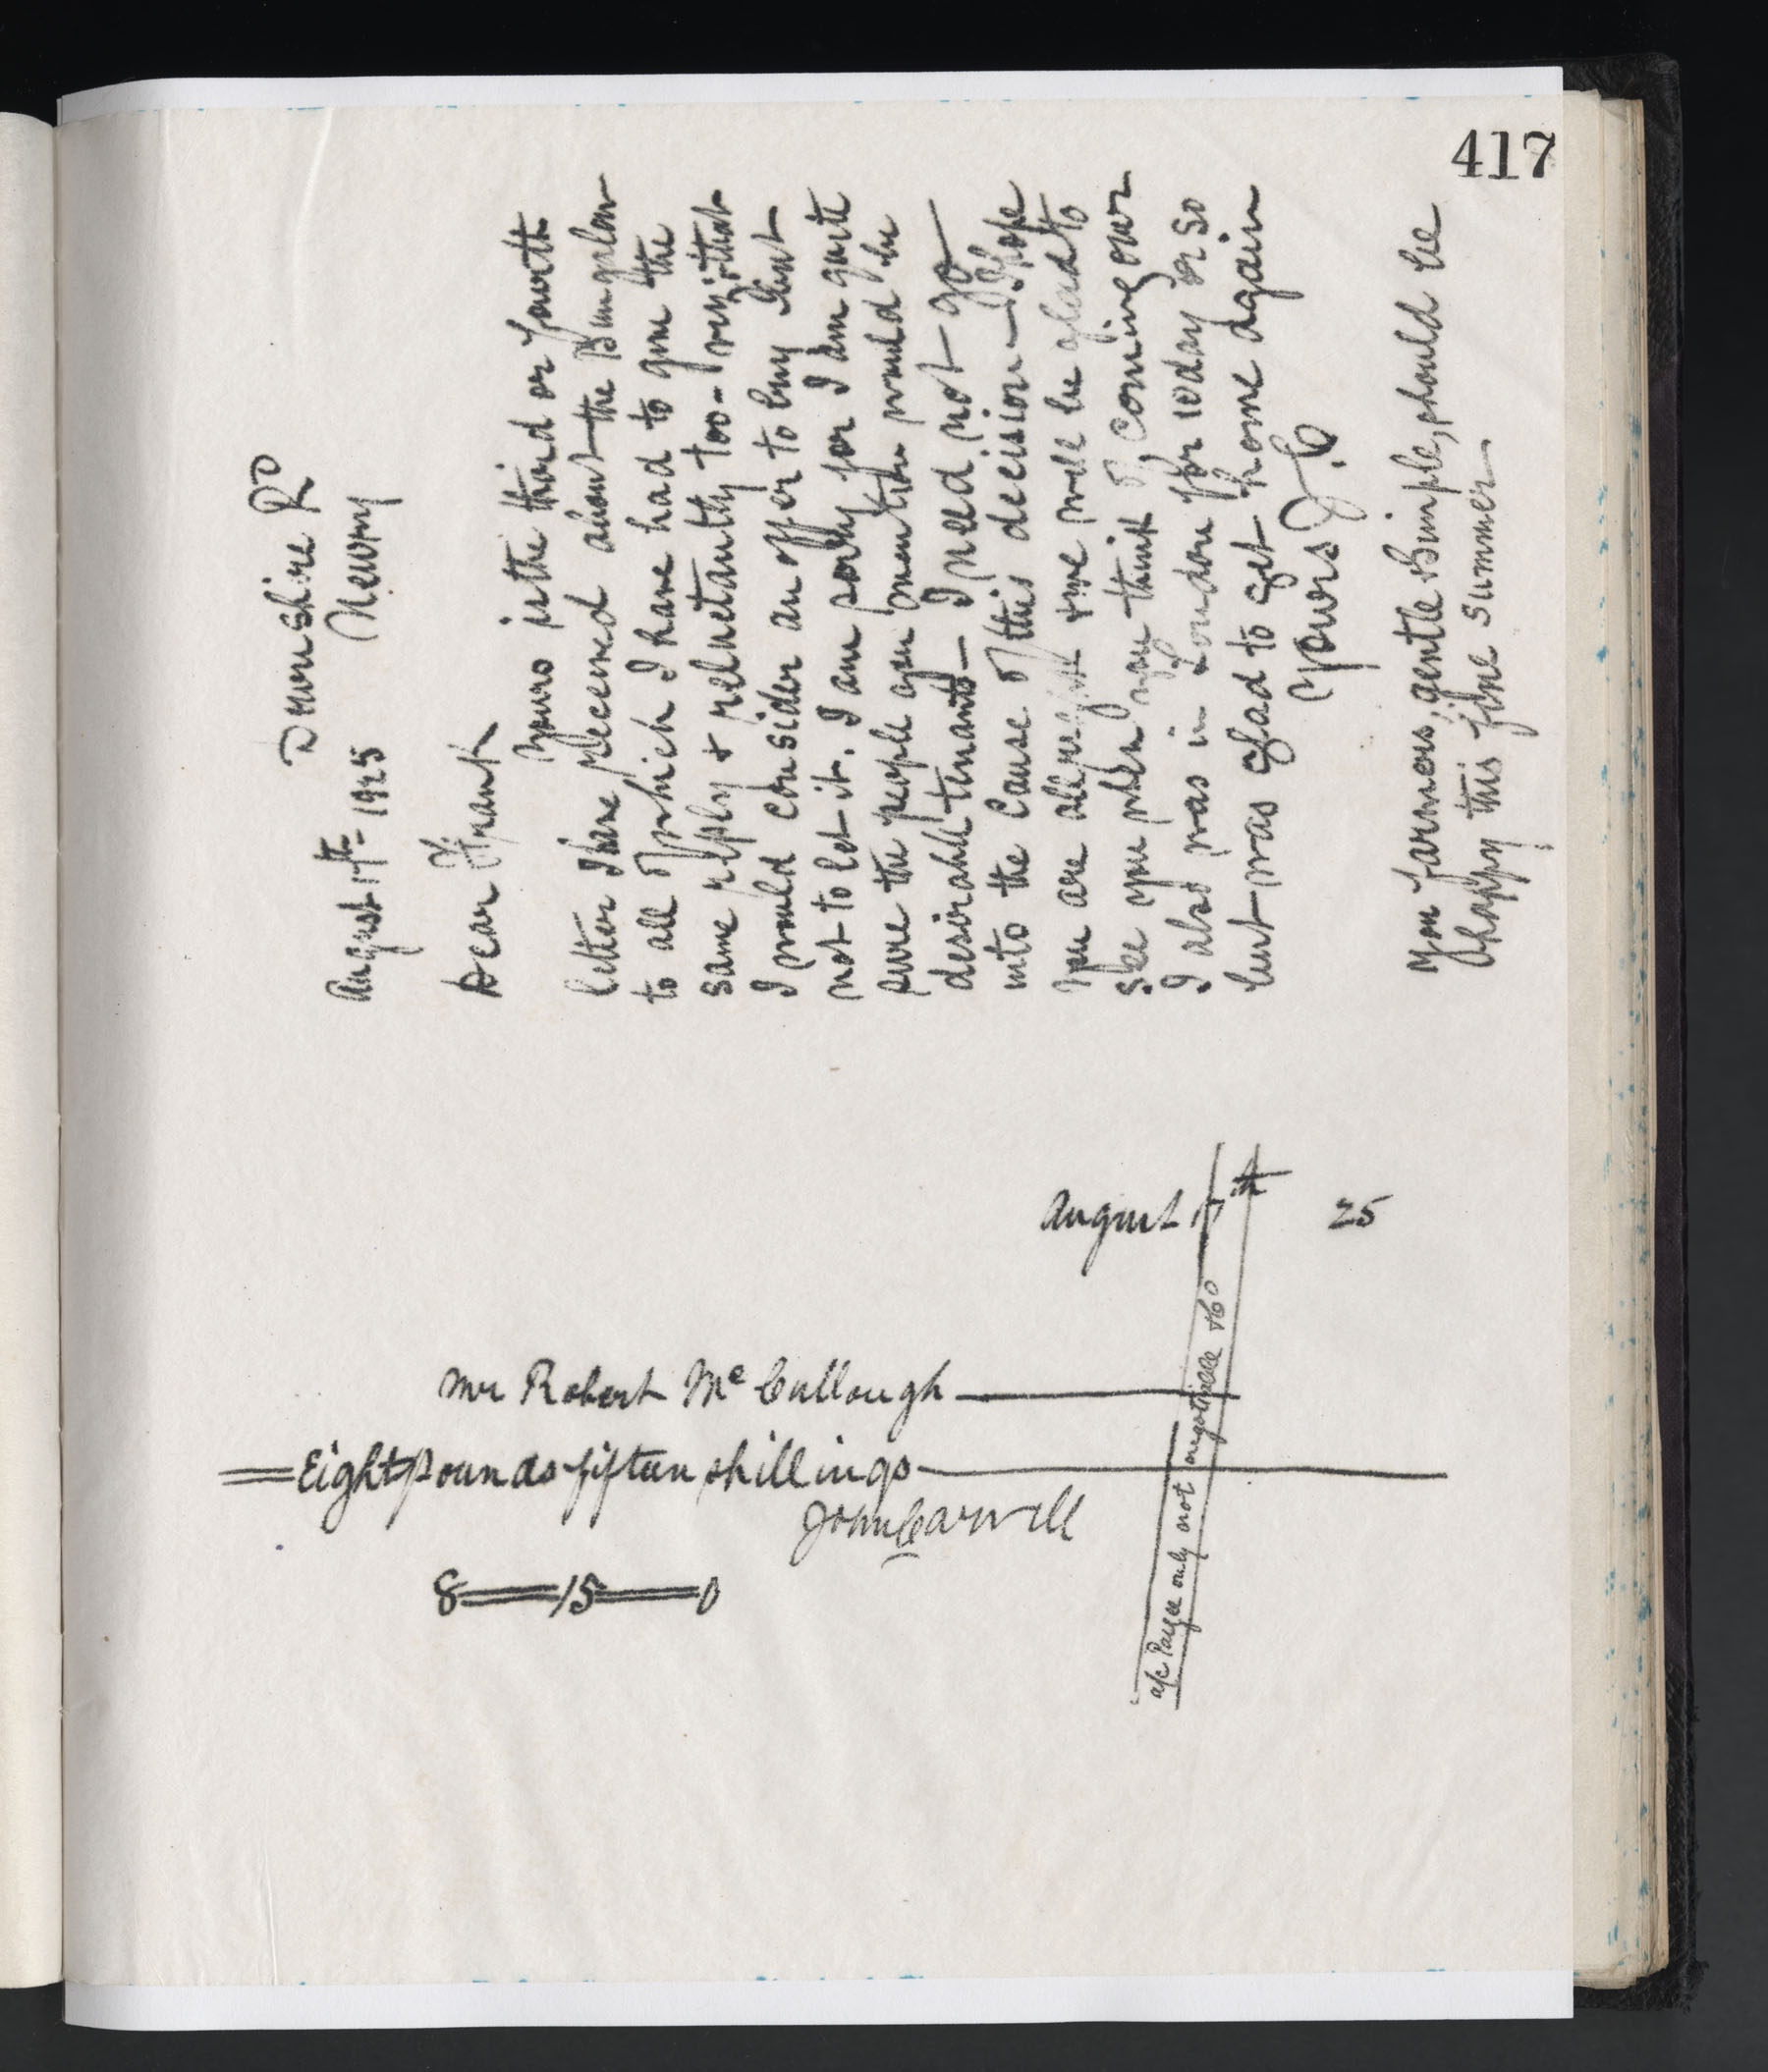 417
Downshire Rd
Newry
August 17th 1925
Dear Frank
Yours is the third or fourth
letter I have received about the Bungalow
to all of which I have had to give the
same reply & reluctantly too - viz; that
I would consider an offer to buy but
not to let it. I am sorry for I am quite
sure the people you mention would be
desirable tenants - I need not go
into the cause of this decision - I hope
you are all right & we will be glad to
see you when you think of coming over
I also was in London for 10 day or so
but was glad to get home again
Yours J.C
You farmers, gentle & simple, should be
happy this fine summer
August 17th 25
Mr Robert McCullough
Eight pounds fifteen shillings
John Carvill
8 = 15 = 0
a/c Payee only not negotiable & Co